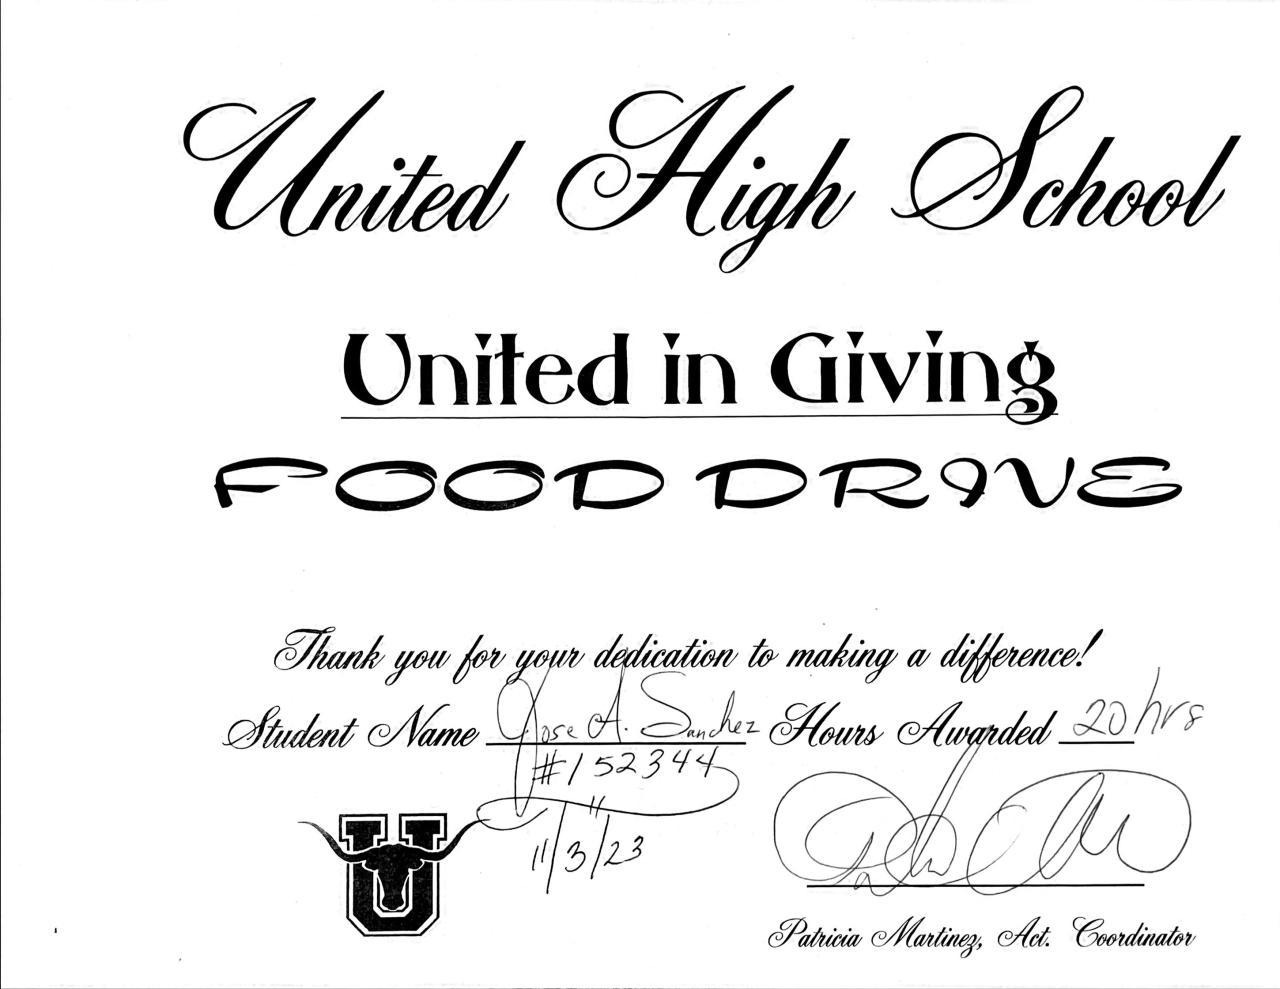 United High School
United in Giving
FOOD DRIVE
Thank you for your dedication to making a difference!
Student Name Jose A. Sanchez Hours Awarded 20 hrs
#152344
11/3/23
U
Patricia Martinez, Act. Coordinator